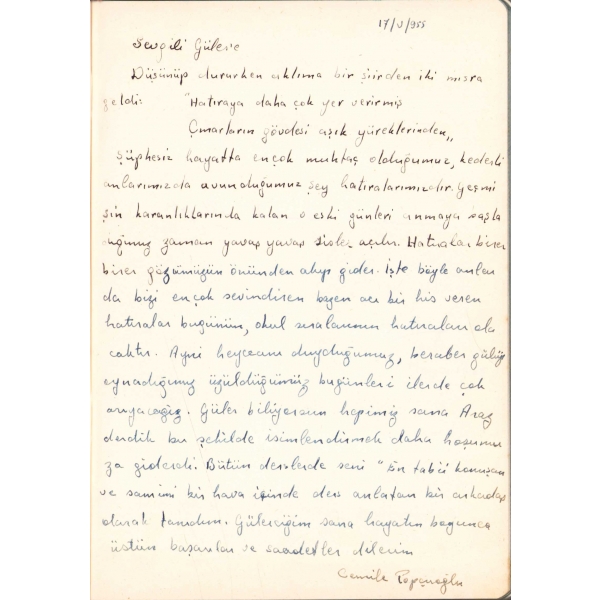 17/V/955
Sevgili Güler'e
Düşünüp dururken aklıma bir şiirden iki mısra
geldi: "Hatıraya daha çok yer verirmiş
Çınarların gövdesi aşık yüreklerinden„
Şüphesiz hayatta ençok muhtaç olduğumuz, kederli
anlarımızda avunduğumuz şey hatıralarımızdır. Geçmi
şin karanlıklarında kalan o eski günleri anmaya başla
dığımız zaman yavaş yavaş sisler açılır. Hatıralar birer
birer gözümüzün önünden akıp gider. İşte böyle anlar
da bizi ençok sevindiren bazen acı bir his veren
hatıralar bugünün, okul sıralarının hatıraları ola
caktır. Ayni heyecanı duyduğumuz, beraber gülüp
oynadığımız üzüldüğümüz bugünleri ilerde çok
arayacağız. Güler biliyorsun hepimiz sana Araz
derdik bu şekilde isimlendirmek daha hoşumu
za giderdi. Bütün derslerde seni "En tabii konuşan
ve samimi bir hava içinde ders anlatan bir arkadaş
olarak tanıdım. Gülerciğim sana hayatın boyunca
üstün başarılar ve saadetler dilerim
Cemile Topçuoğlu